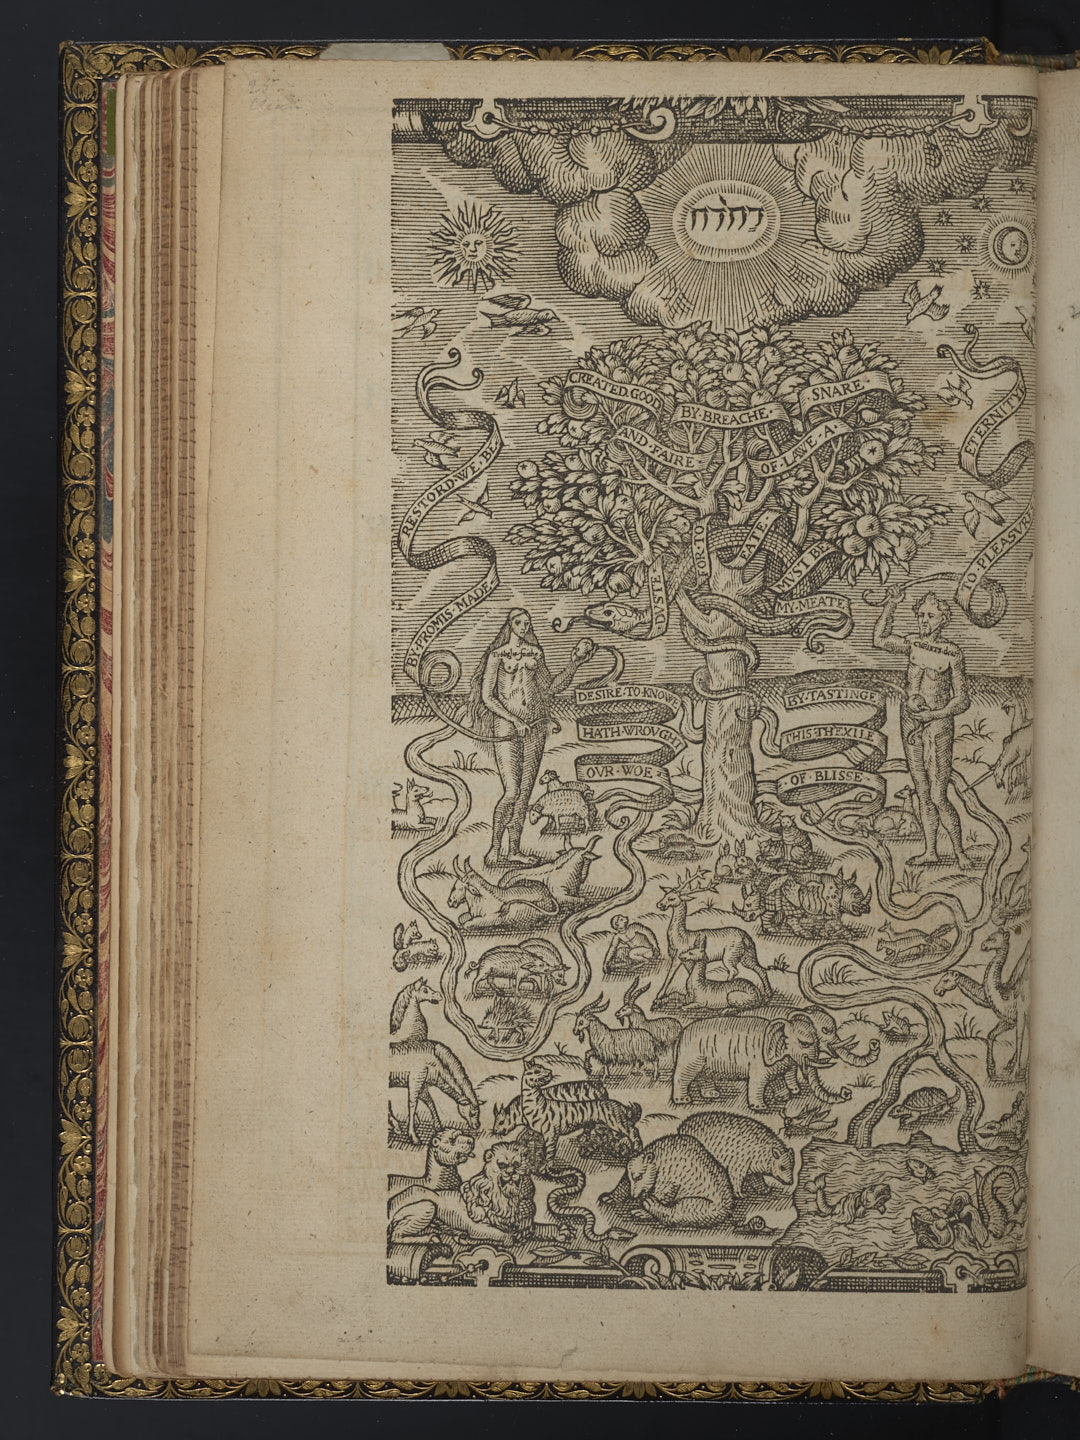 יהוה
CREATED.GOOD
AND.FAIRE.
BY.BREACHE.
OF.LAWE.A.
SNARE.
RESTORD.WE.BE
BY.PROMIS.MADE
ETERNITY
TO.PLEASVR
DVST.
FOR.TO
EATE.
MVST BE
MY.MEATE
DESIRE.TO.KNOW
HATH.WROVGHT
OVR.WOE
BY.TASTINGE
THIS.TH.EXILE
OF BLISSE